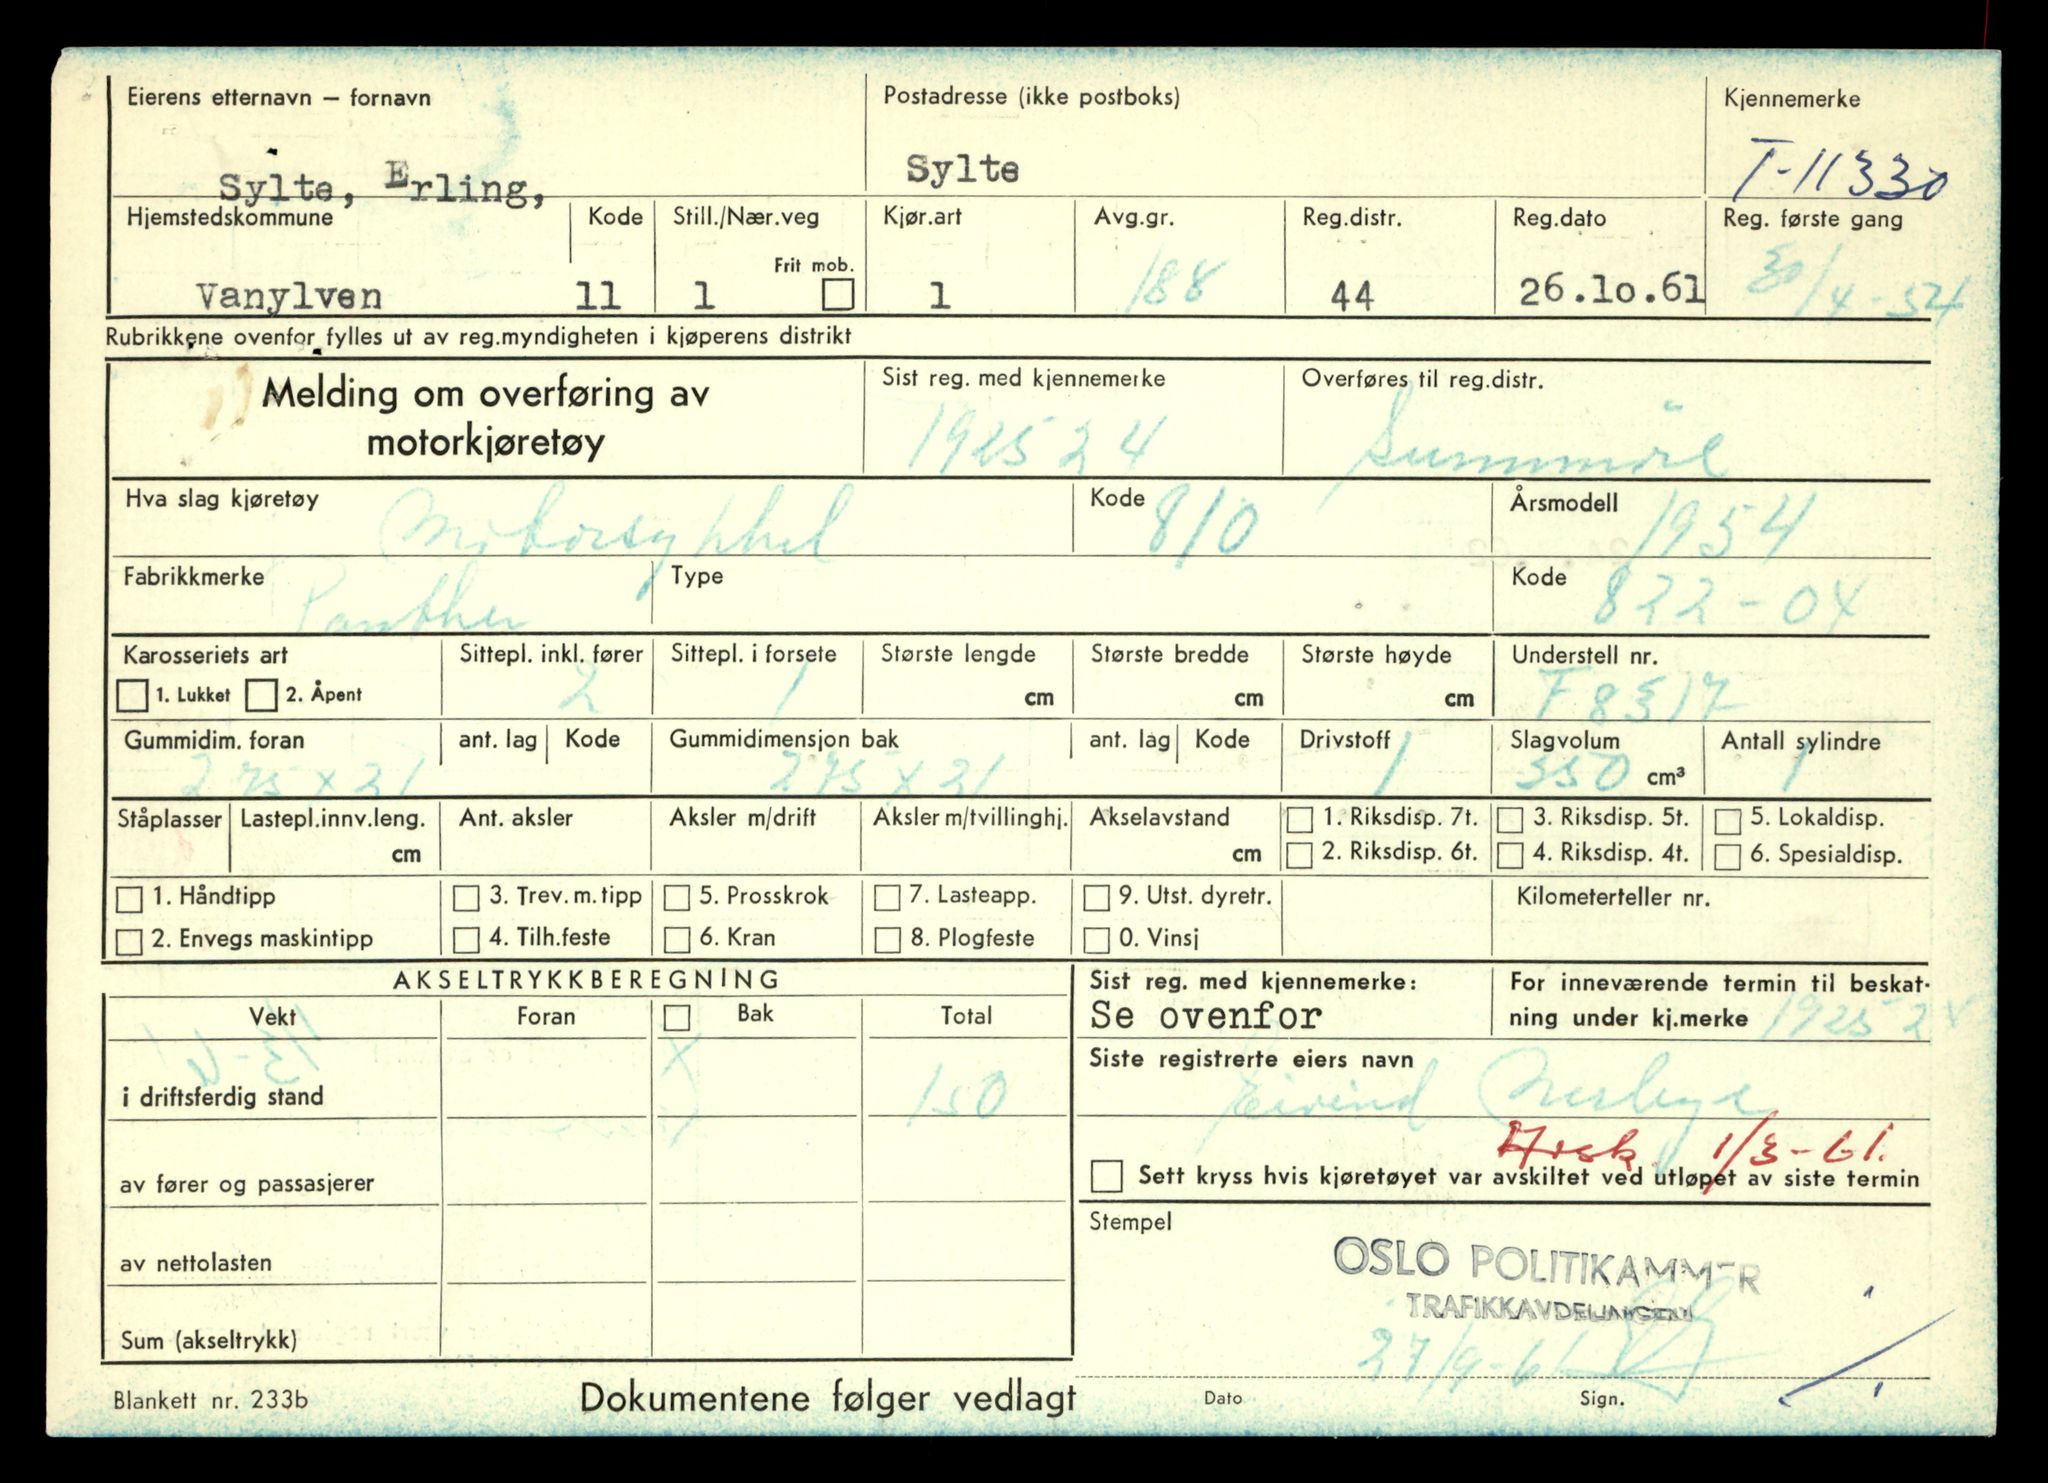 Eierens etternavn – fornavn
Postadresse (ikke postboks)
Kjennemerke
Sylte, Erling,
Sylte
T-11330
Hjemstedskommune
Kode
Still./Nær.veg
Kjør.art
Avg.gr.
Reg.distr.
Reg.dato
Reg. første gang
Frit mob.
Vanylven
11
1
1
188
44
26.10.61
30/4-54
Rubrikkene ovenfor fylles ut av reg.myndigheten i kjøperens distrikt
Melding om overføring av
motorkjøretøy
Sist reg. med kjennemerke
192524
Overføres til reg.distr.
Sunnmöre
Hva slag kjøretøy
Motorsykkel
Kode
810
Årsmodell
1954
Fabrikkmerke
Panther
Type
Kode
822-04
Karosseriets art
Sittepl. inkl. fører
Sittepl. i forsete
Største lengde
Største bredde
Største høyde
Understell nr.
1. Lukket
2. Åpent
2
1
cm
cm
cm
F8517
Gummidim. foran
ant. lag
Kode
Gummidimensjon bak
ant. lag
Kode
Drivstoff
Slagvolum
Antall sylindre
275 x 21
275 x 21
1
350 cm³
1
Ståplasser
Lastepl.innv.leng.
cm
Ant. aksler
Aksler m/drift
Aksler m/tvillinghj.
Akselavstand
cm
1. Riksdisp. 7t.
3. Riksdisp. 5t.
5. Lokaldisp.
2. Riksdisp. 6t.
4. Riksdisp. 4t.
6. Spesialdisp.
1. Håndtipp
3. Trev. m. tipp
5. Prosskrok
7. Lasteapp.
9. Utst. dyretr.
Kilometerteller nr.
2. Envegs maskintipp
4. Tilh.feste
6. Kran
8. Plogfeste
0. Vinsj
AKSELTRYKKBEREGNING
Vekt
Foran
Bak
Total
i driftsferdig stand
150
av fører og passasjerer
av nettolasten
Sum (akseltrykk)
Sist reg. med kjennemerke:
Se ovenfor
For inneværende termin til beskat-
ning under kj.merke 192524
Siste registrerte eiers navn
Eivind
1/3-61.
Sett kryss hvis kjøretøyet var avskiltet ved utløpet av siste termin
Stempel
OSLO POLITIKAMMER
TRAFIKKAVDELINGEN
27/9-61
Dato
Sign.
Blankett nr. 233b
Dokumentene følger vedlagt